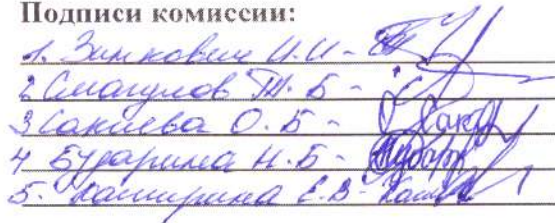 Подписи комиссии:
1. Зинкович И.И -
2 Смагулов Т. Б -
3 Сакиева О. Б -
4 Бударина Н. Б -
5. Каширина Е.В -